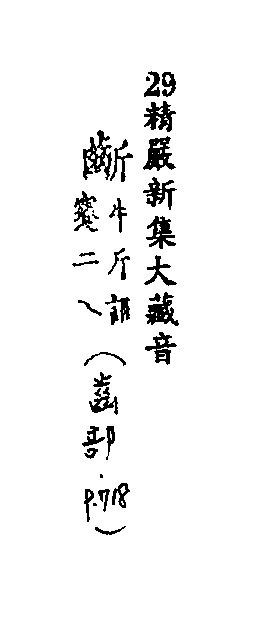 29精嚴新集大藏音
齗牛斤
二乀（齒部．p.718）